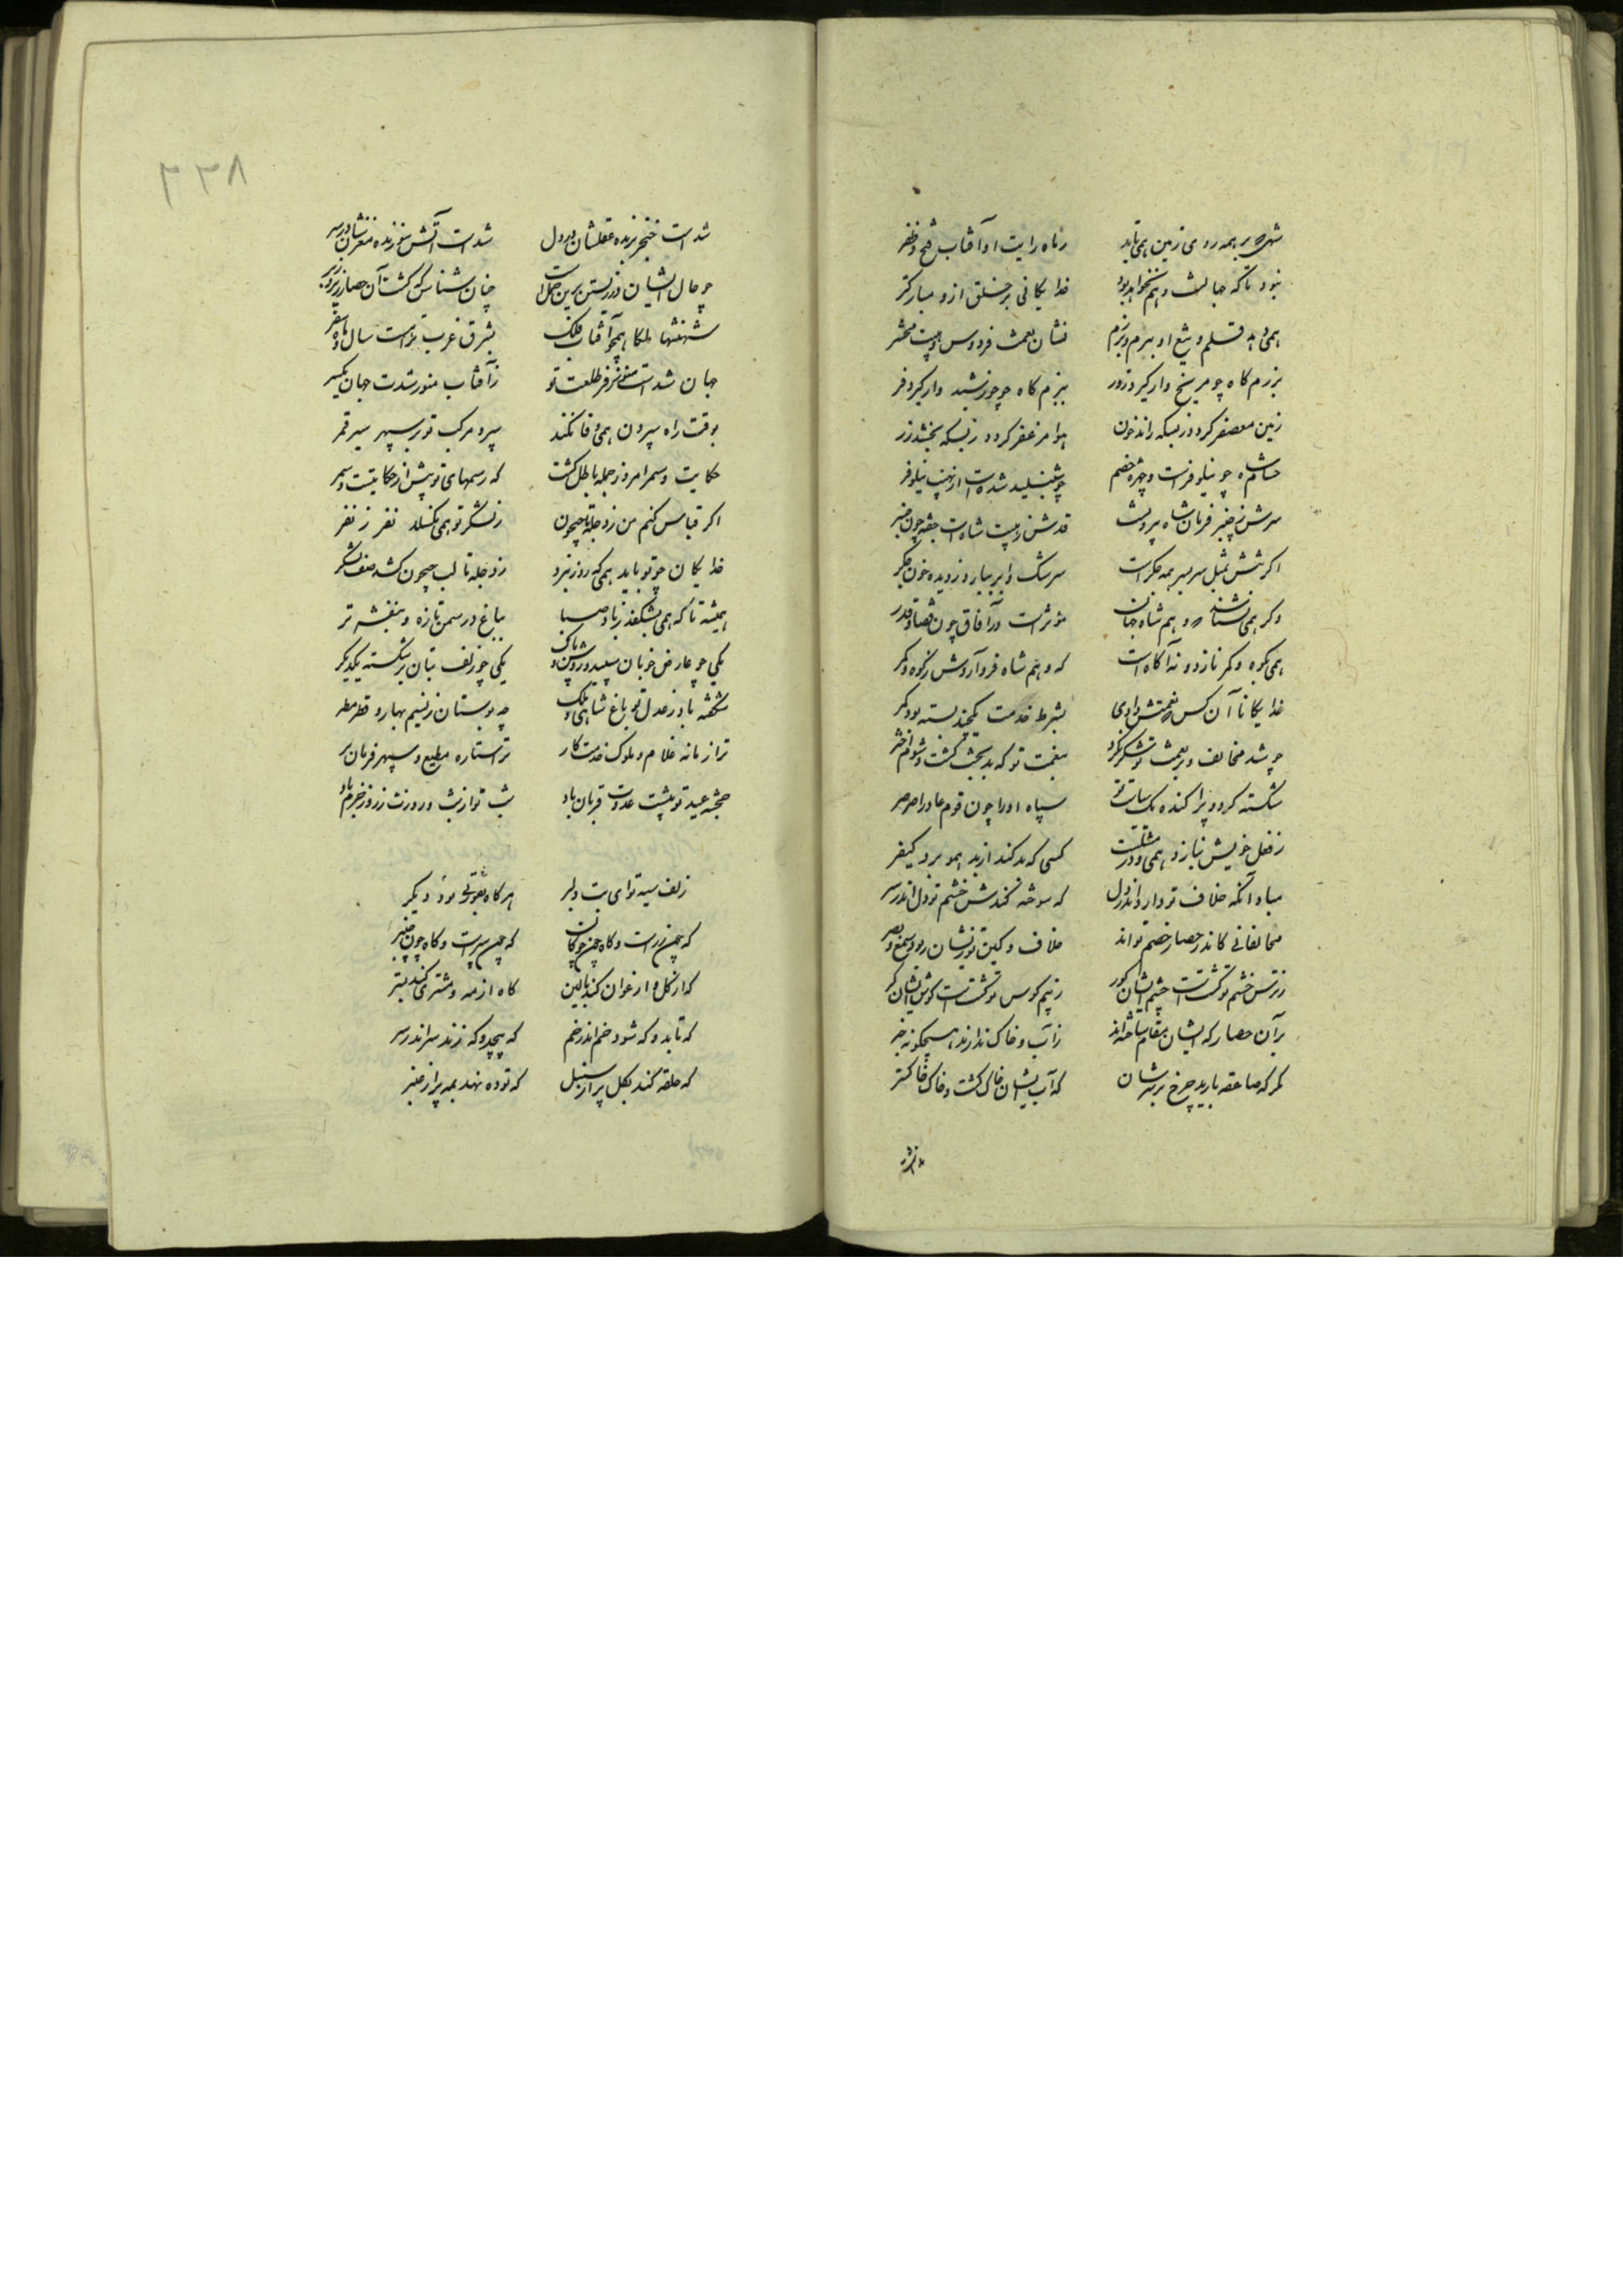 شهی که بر همه روی زمین همی تابد زماه رایت او آفتاب فتح و ظفر
نبود تا که جهانست و هم نخواهد بود خدایکانی بر خلق ازو مبارکتر
همی دهد قلم و تیغ او ببزم و برزم نشان نعمت فردوس و هیبت محشر
برزم کاه چو مریخ دار کیر و زور ببزم کاه چو خورشید دار کیر و فر
زمین معصفر کردد زبسکه راند خون هوا مزعفر کردد زبسکه بخشد زر
حسام شاه چو نیلوفرست و چهره خصم چو شنبلید شده است از نهیب نیلوفر
سرش ز چنبر فرمان شاه بیرونست قدش ز هیبت شاه است چفته چون چنبر
اکر تنش بمثل سر بسر همه جکر است سرشک وار ببارد ز دیده خون جکر
وکر همی نشناسد که وهم شاه جهان مؤثر است در آفاق چون قضا و قدر
همی بکوه و کمر نازد و نه آکاه است که وهم شاه فرود آردش ز کوه و کمر
خدایکانا آن کس که نعمتش دادی بشرط خدمت یکچند بسته بود کمر
چو شد مخالف و بر نعمت تو شکر نکرد بنقمت تو که بدبخت کشت و شوم اختر
شکسته کرد و پراکنده یک سیاست تو سپاه او را چون قوم عاد را صرصر
ز فعل خویش نیازد همی و در مثلست کسی که بد کند از بد همو برد کیفر
مباد آنکه خلاف تو دارد اندر دل که سوخته کندش خشم تو دل اندر بر
مخالفانی کاندر حصار خصم تواند خلاف و کین تو زیشان ربود سمع و بصر
ز ترس خشم تو کشتست چشم ایشان کور ز بیم کوس تو کشتست کوش ایشان کر
بر آن حصار که ایشان مقام ساخته اند ز آب و خاک ندارند هیچکونه خبر
مکر که صاعقه بارید چرخ بر سرشان که آب ایشان خاک کشت و خاک خاکستر
۲۲۸
شد است خنجر برنده عقلشان در دل شد است آتش سوزنده مغزشان در سر
چو حال ایشان در زیستن برین جمله است چنان شناس که کشت آن حصار زیر و زبر
شهنشها ملکا همچو آفتاب فلک بشرق و غرب تو است سال و ماه سفر
جهان شد است منور ز فر طلعت تو ز آفتاب منور شدست جهان یکسر
بوقت راه سپردن همی وفا نکند سپر و مرکب تو بر سپهر سیر قمر
حکایت و سمر امروز جمله باطل کشت که رسمهای تو بیش از حکایتست و سمر
اکر قیاس کنم من ز دجله تا جیحون ز لشکر تو همی نکسلد نفر ز نفر
خدایکان چو تو باید همی که روز نبرد ز دجله تا لب جیحون کشد صف لشکر
همیشه تا که همی بشکفد ز باد صبا بباغ در سمن تازه و بنفشه تر
یکی چو عارض خوبان سپید و روشن و پاک یکی چو زلف بتان بر شکسته یکدیکر
شکفته باد ز عدل تو باغ شاهی و ملک چه بوستان ز نسیم بهار و قطر مطر
ترا زمانه غلام و ملوک خدمتکار ترا ستاره مطیع و سپهر فرمان بر
خجسته عید تو پشت عدوت قربان باد شب تو از شب و روزت ز روز خرم باد
زلف سیه تو ای بت دلبر هر کاه بصورتی بود دیکر
که چون زره است و کاه چون چوکان که چون سپر است و کاه چون چنبر
که از کل و ارغوان کند بالین کاه از مه و مشتری کند بستر
که تابد و که شود خم اندر خم که پیچد و که زند سر اندر سر
که حلقه کند بکل بر از سنبل که توده نهد بمه بر از عنبر